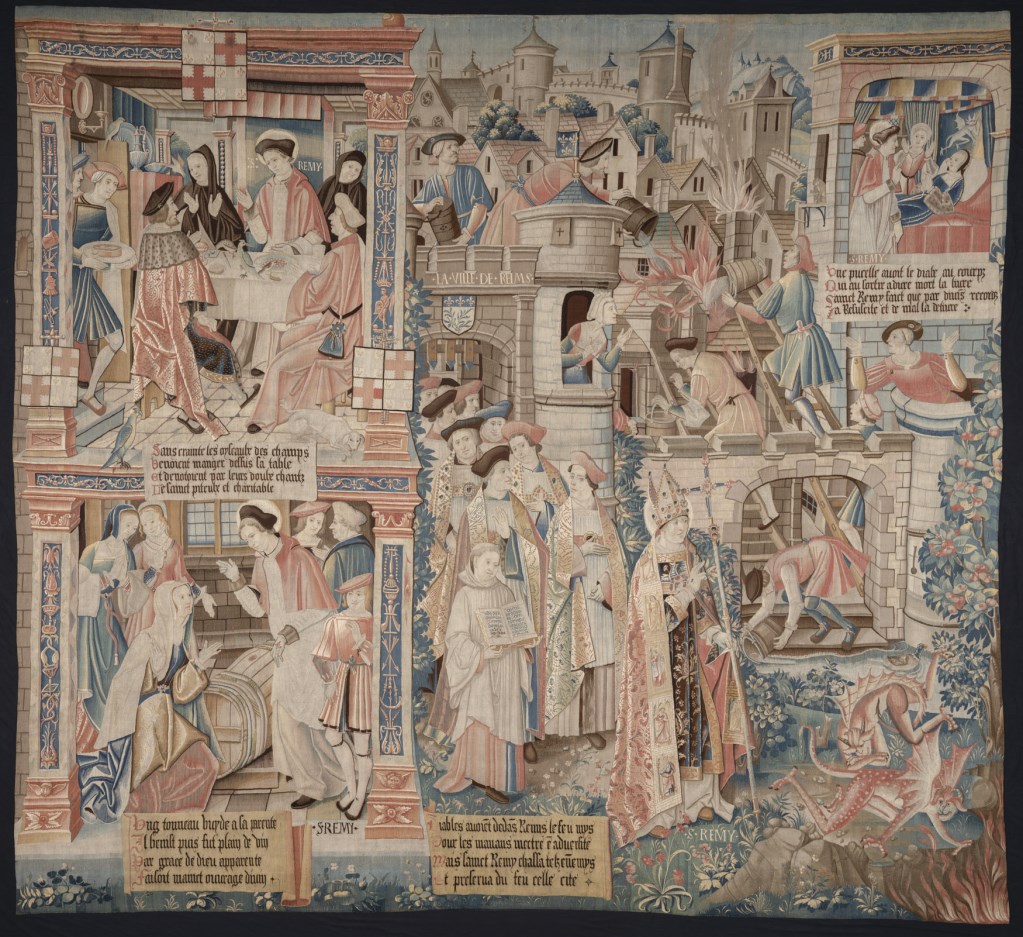 REMY
LA·VILLE·DE·REIMS
·S·REMY·
Une pucelle avoit le diable au corps
Qui au sortir a dure mort la livre
Sainct Remy faict que par divins recors
La Resuscite et de mal la delivre
Sans crainte les oyseaulx des champs
Venoient manger dessus sa table
Et denotoient par leurs doulx chantz
De sainct piteulx et charitable
Ung tonneau vuyde a sa parente
Il benist puis fut plain de vin
Par grace de dieu apparente
Faisoit maint ouvrage divin
·S·REMY·
Diables avoient dedans Reims le feu mys
Pour les manans mettre en adversite
Mais sainct Remy chassa telz ennemys
Et preserva du feu celle cite
·S·REMY·